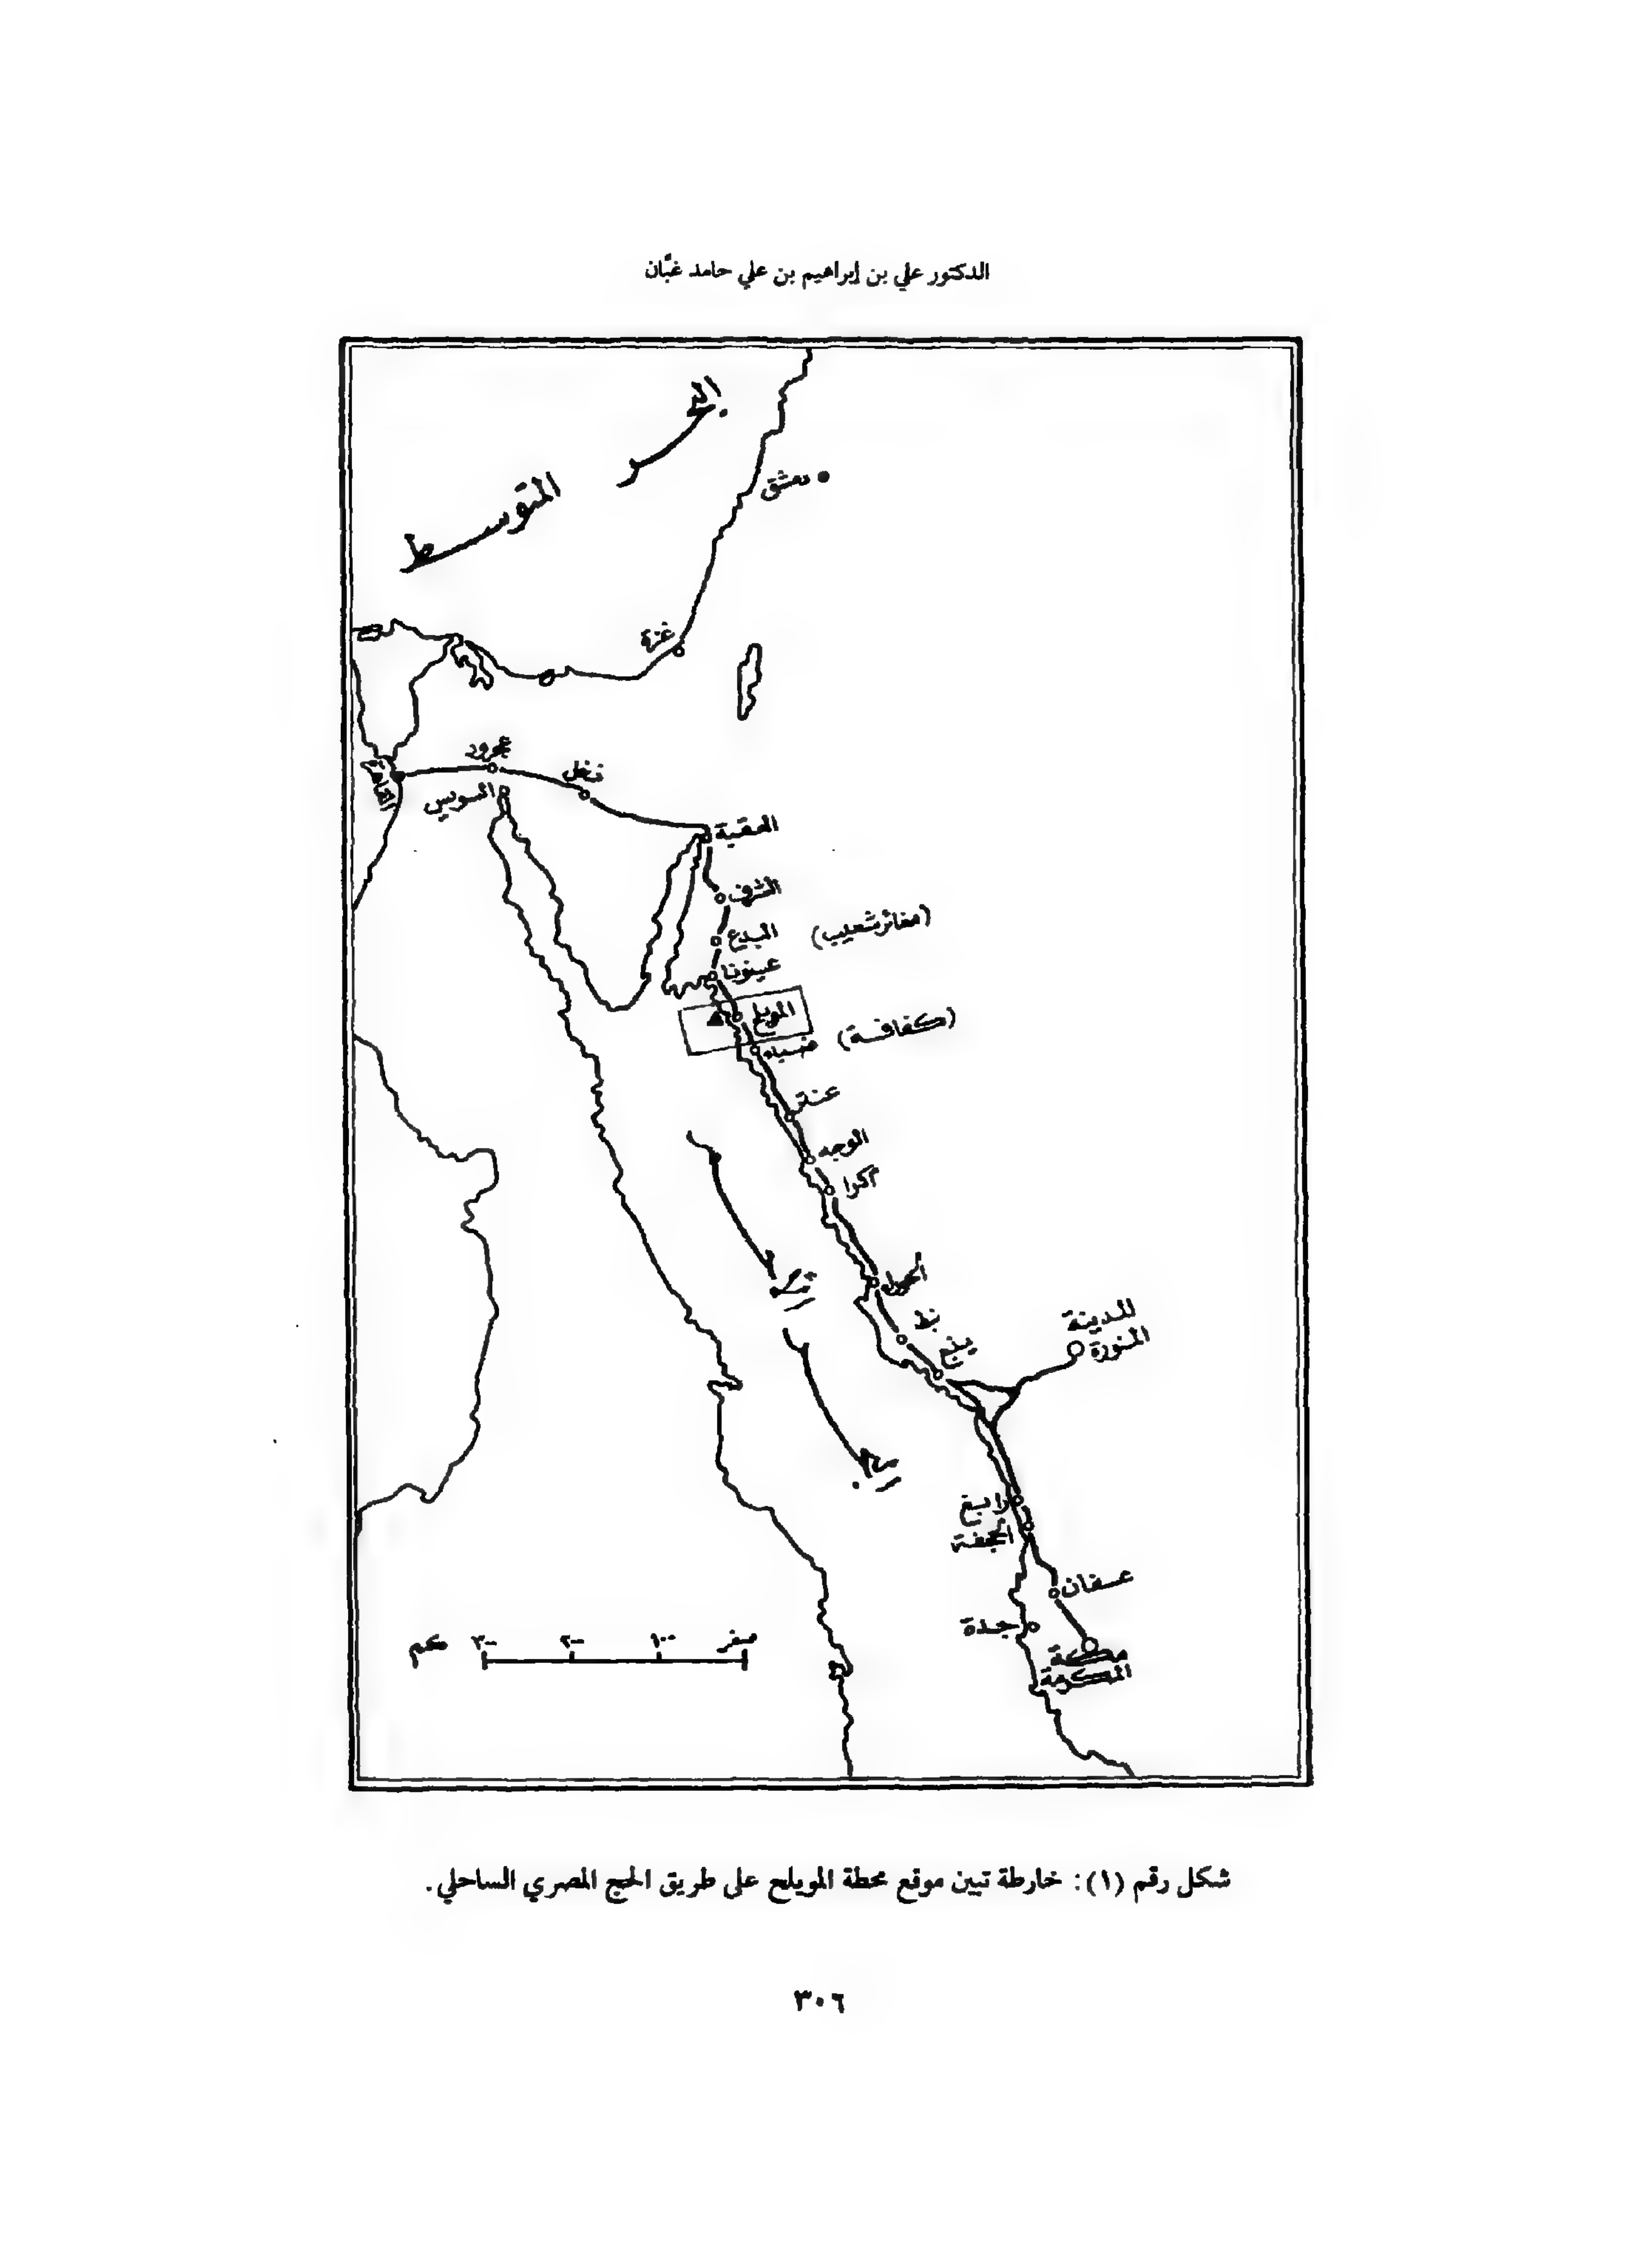 الدكتور علي بن إبراهيم بن علي حامد غبَّان
البحر
المتوسط
دمشق
غزة
عجرود
نخل
القاهرة
السويس
العقبة
الشرف
البدع (مغائر شعيب)
عينونا
المويلح
ضباء (كفافة)
عنتر
الوجه
اكرا
البحر
الأحمر
الحوراء
نبط
ينبع
المدينة
المنورة
رابغ
الجحفة
عسفان
جدة
مكة
المكرمة
صفر ١٠٠ ٢٠٠ ٣٠٠ كم
شكل رقم (١): خارطة تبين موقع محطة المويلح على طريق الحج المصري الساحلي.
٣٠٦